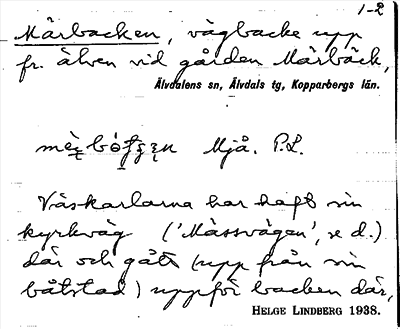 1-2
Mårbacken, vägbacke upp
fr. älven vid gården Mårbäck,
Älvdalens sn, Älvdals tg, Kopparbergs län.
Mjå. P.L.
Väskarlarna har haft sin
kyrkväg ('Mässvägen', se d.)
där och gått (upp från sin
båtstad) uppför backen där,
HELGE LINDBERG 1938.